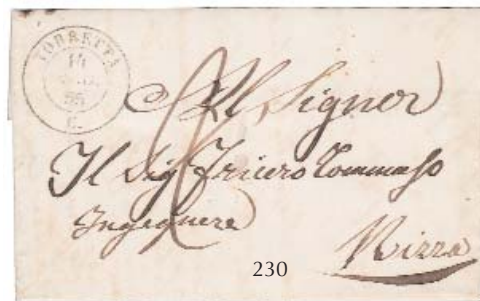 TORRETTA
14
55
Al Signor
Il Sig Tommaso
Ingegnere
Nizza
230